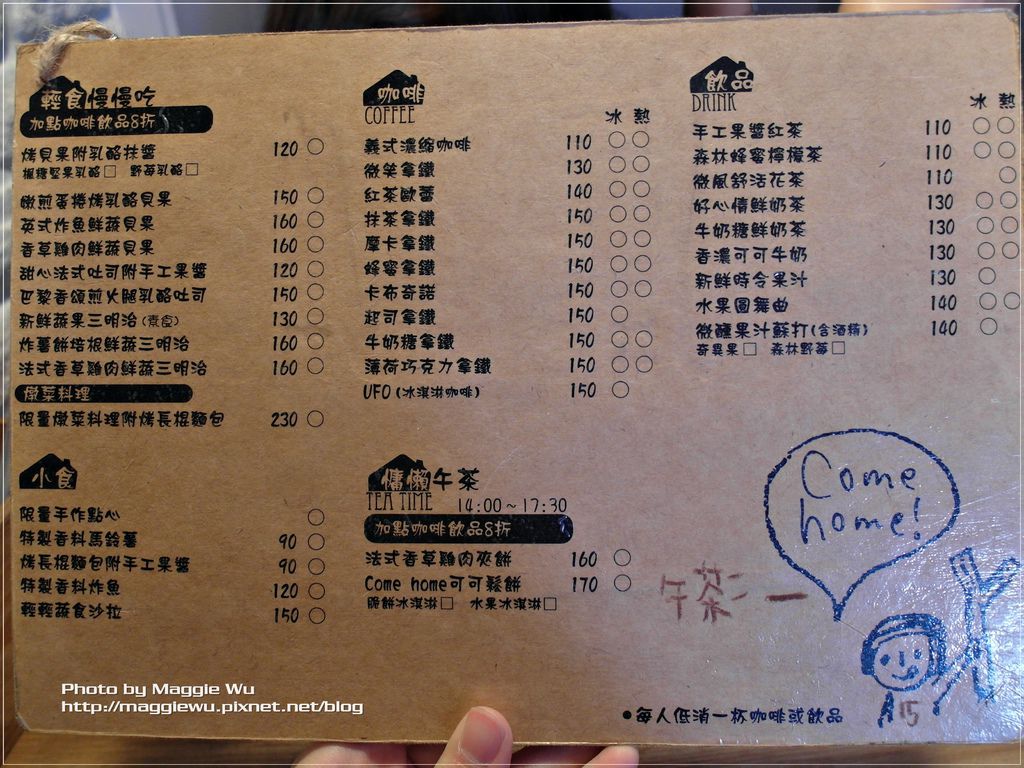 輕食慢慢吃
加點咖啡飲品8折
烤貝果附乳酪抹醬 120 ○
楓糖堅果乳酪□ 野莓乳酪□
嫩煎蛋捲烤乳酪貝果 150 ○
英式炸魚鮮蔬貝果 160 ○
香草雞肉鮮蔬貝果 160 ○
甜心法式吐司附手工果醬 120 ○
巴黎香頌煎火腿乳酪吐司 150 ○
新鮮蔬果三明治(素食) 130 ○
炸薯餅培根鮮蔬三明治 160 ○
法式香草雞肉鮮蔬三明治 160 ○
燉菜料理
限量燉菜料理附烤長棍麵包 230 ○
小食
限量手作點心 ○
特製香料馬鈴薯 90 ○
烤長棍麵包附手工果醬 90 ○
特製香料炸魚 120 ○
輕輕蔬食沙拉 150 ○
咖啡
COFFEE
冰 熱
義式濃縮咖啡 110 ○○
微笑拿鐵 130 ○○
紅茶歐蕾 140 ○○
抹茶拿鐵 150 ○○
摩卡拿鐵 150 ○○
蜂蜜拿鐵 150 ○○
卡布奇諾 150 ○○
起司拿鐵 150 ○
牛奶糖拿鐵 150 ○○
薄荷巧克力拿鐵 150 ○○
UFO(冰淇淋咖啡) 150 ○
慵懶午茶
TEA TIME 14:00~17:30
加點咖啡飲品8折
法式香草雞肉夾餅 160 ○
Come home可可鬆餅 170 ○
脆餅冰淇淋□ 水果冰淇淋□
飲品
DRINK
冰 熱
手工果醬紅茶 110 ○○
森林蜂蜜檸檬茶 110 ○○
微風舒活花茶 110 ○
好心情鮮奶茶 130 ○○
牛奶糖鮮奶茶 130 ○○
香濃可可牛奶 130 ○○
新鮮時令果汁 130 ○
水果圓舞曲 140 ○○
微醺果汁蘇打(含酒精) 140 ○
奇異果□ 森林野莓□
Come
home!
午茶:一
15
●每人低消一杯咖啡或飲品
Photo by Maggie Wu
http://maggiewu.pixnet.net/blog